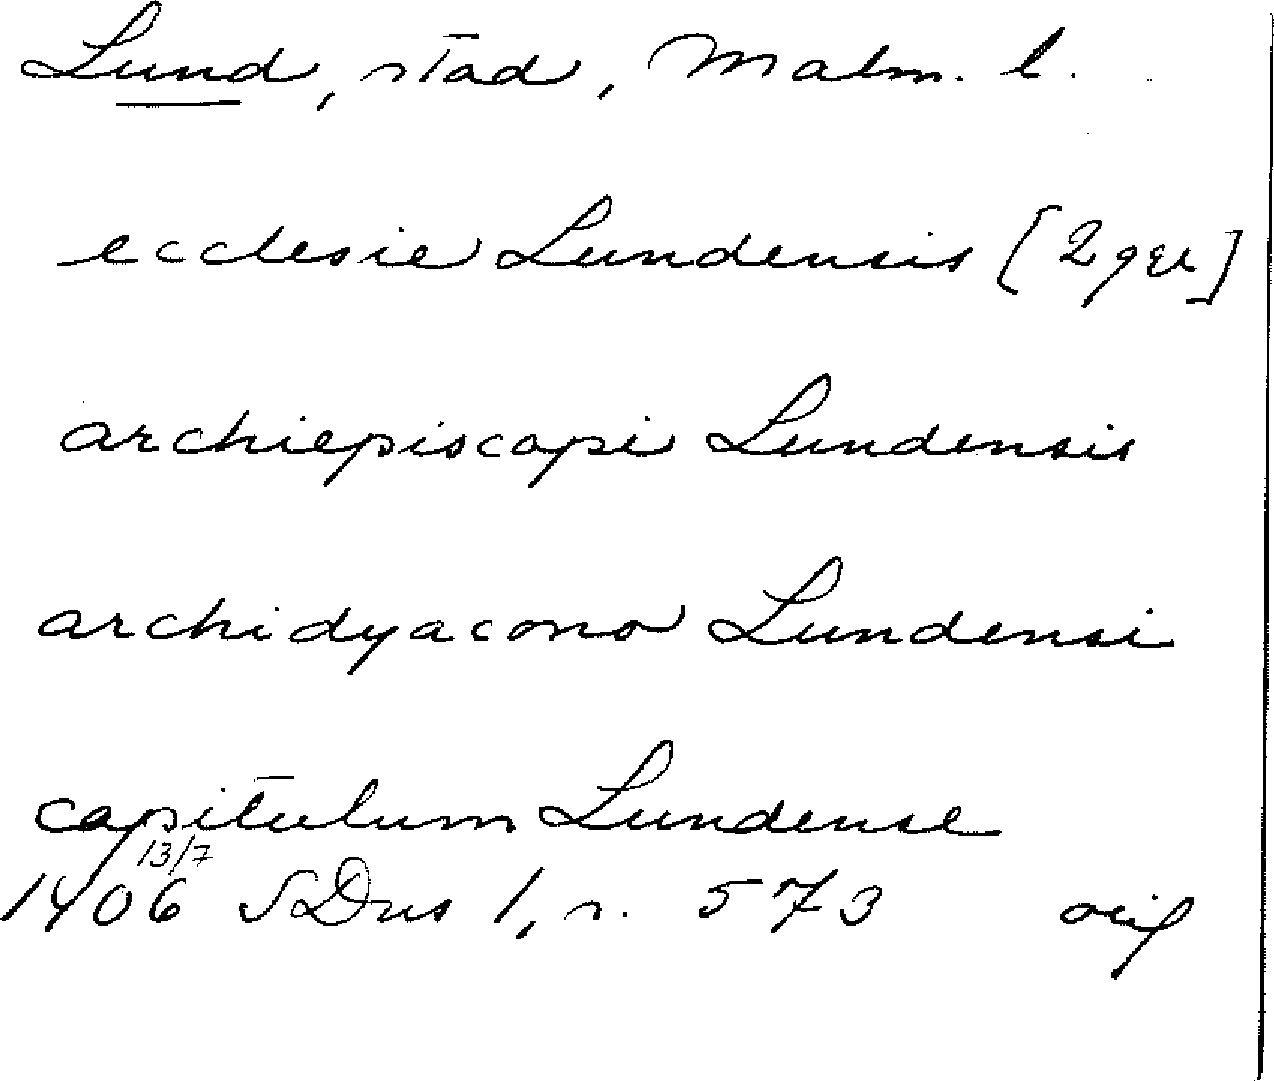 Lund, stad, Malm. l.
ecclesie Lundensis [2 ggr]
archiepiscopi Lundensis
archidyacono Lundensi
capitulum Lundense
13/7
1406 SDns 1, s. 573 orig